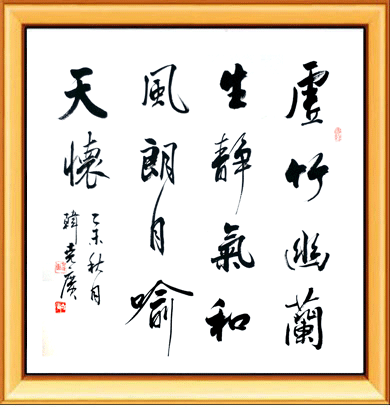 虛竹幽蘭
生静氣和
風朗月喻
天懷
乙未秋月
韓 廣